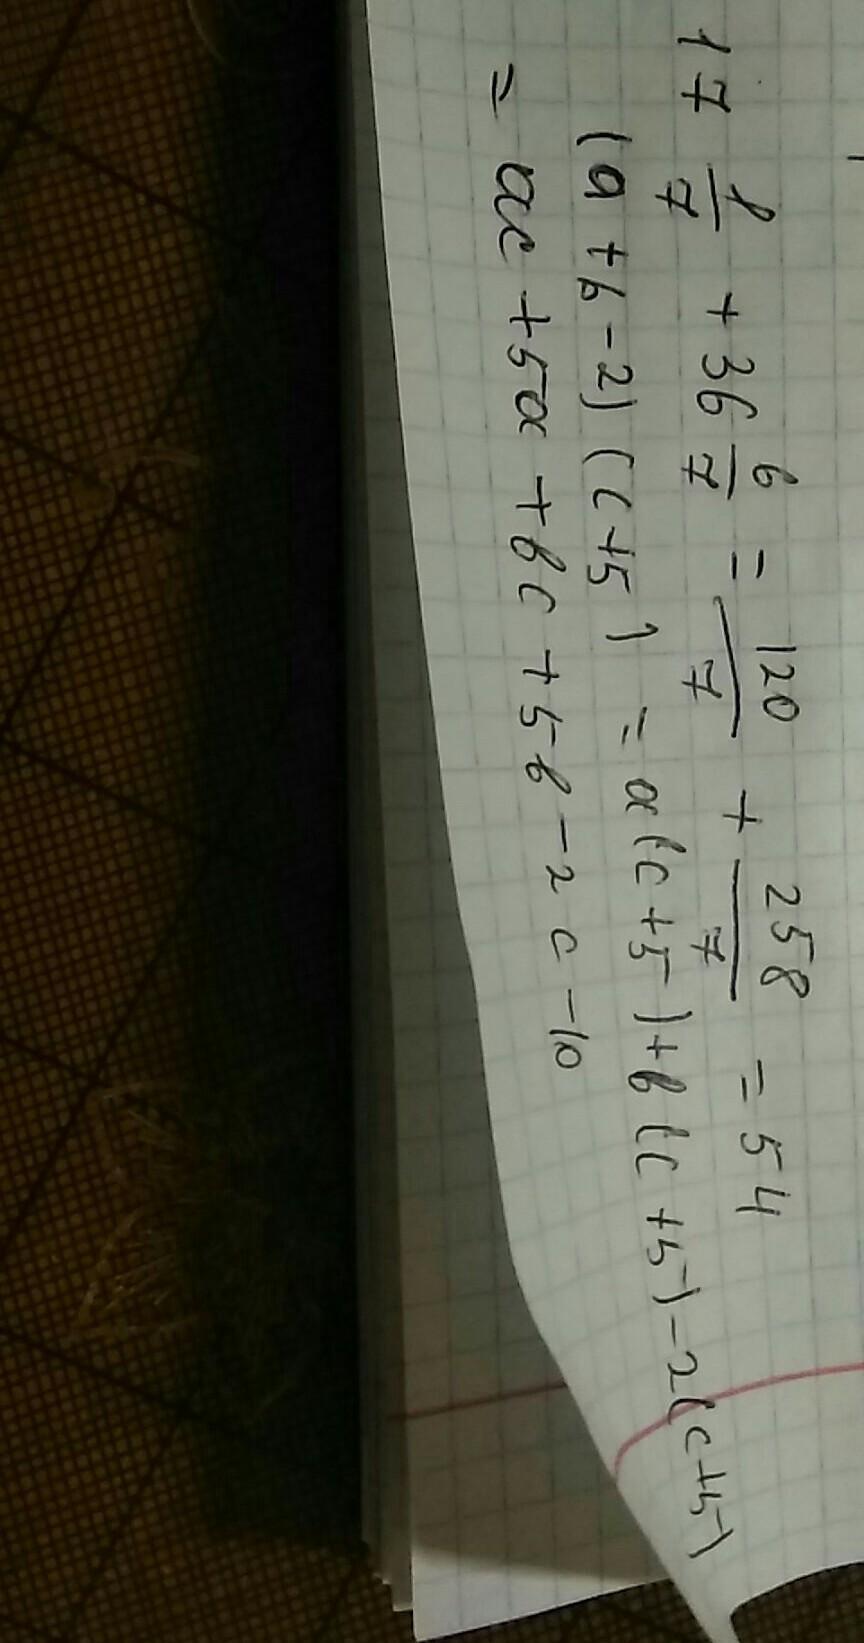 17 1/7 + 36 6/7 = 120/7 + 258/7 = 54
(a + b - 2) (c + 5) = a(c + 5) + b(c + 5) - 2(c + 5)
= ac + 5a + bc + 5b - 2c - 10